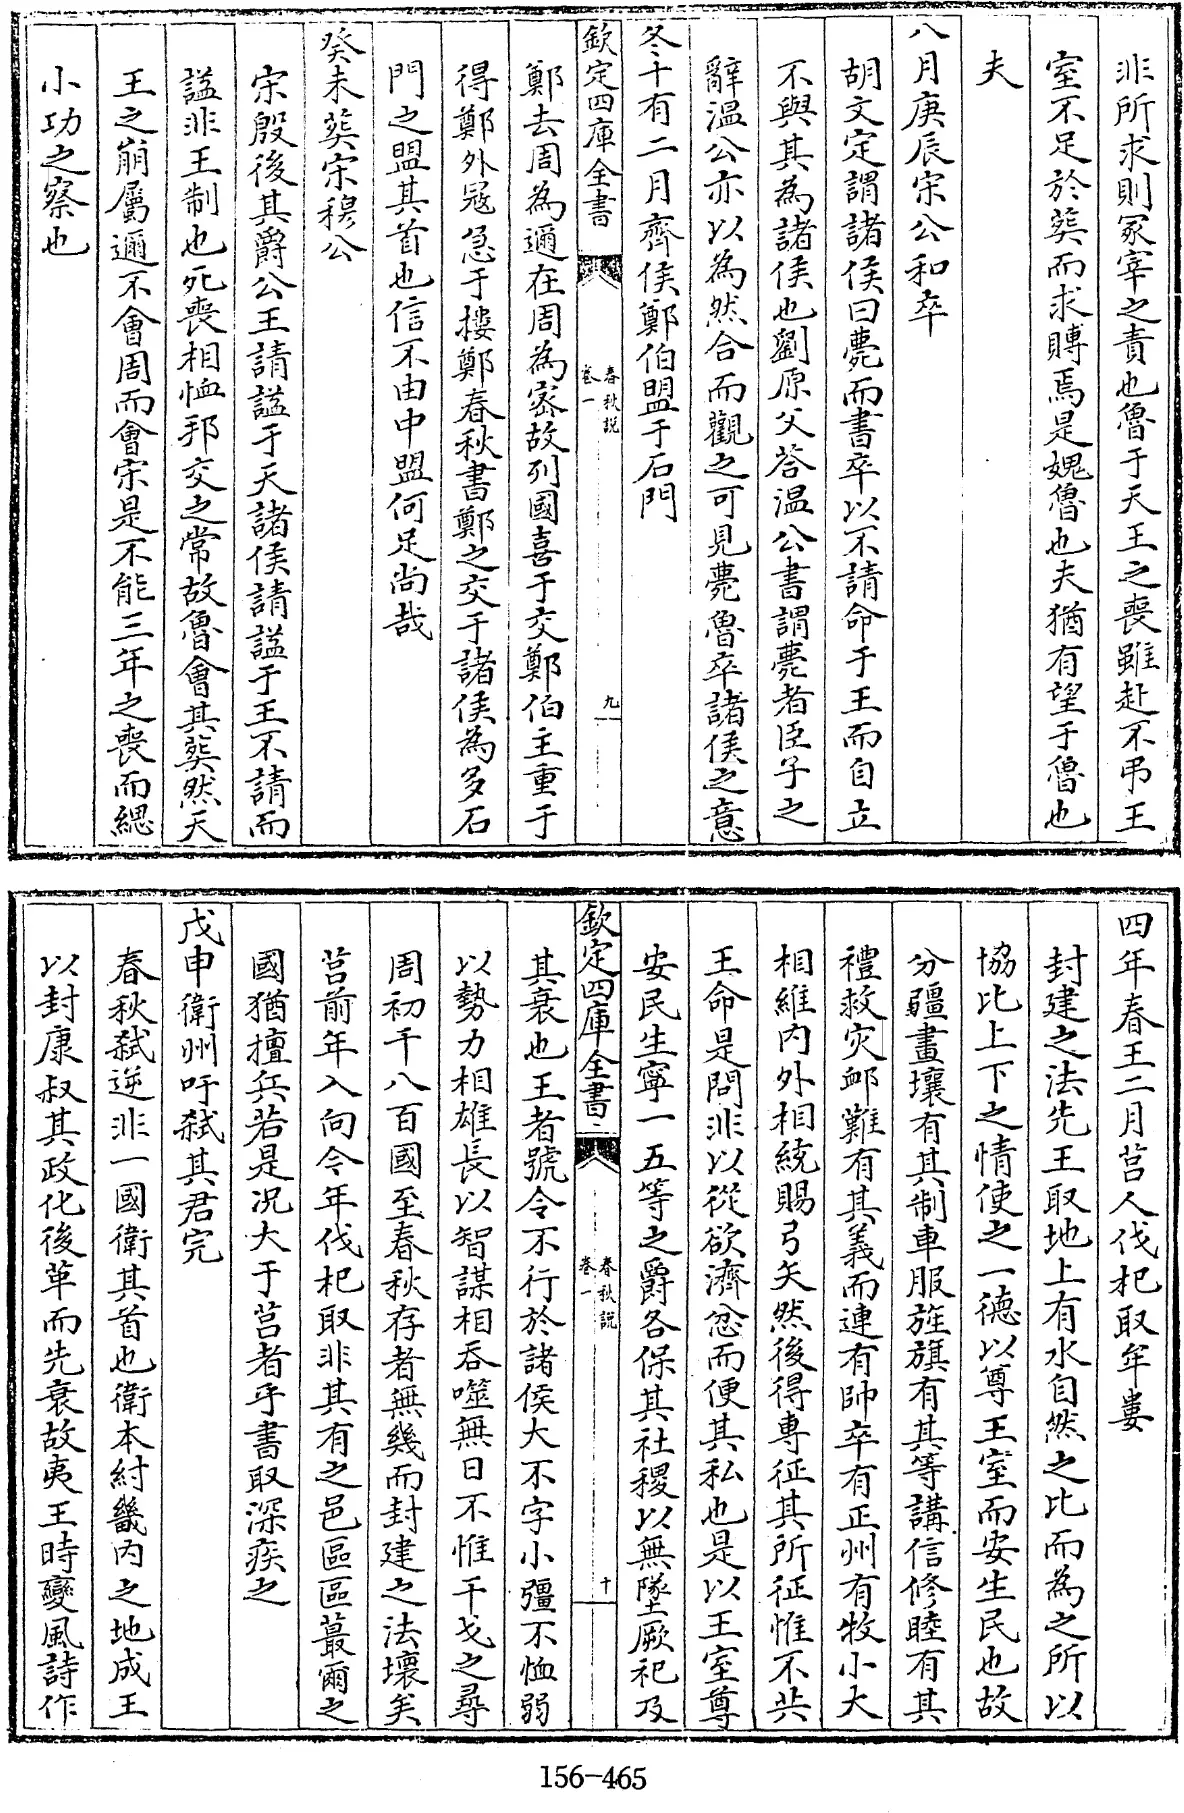 非所求則冢宰之責也魯于天王之喪雖赴不弔王
室不足於葬而求賻焉是媿魯也夫猶有望于魯也
夫
八月庚辰宋公和卒
胡文定謂諸侯曰薨而書卒以不請命于王而自立
不與其為諸侯也劉原父荅温公書謂薨者臣子之
辭温公亦以為然合而觀之可見薨魯卒諸侯之意
冬十有二月齊侯鄭伯盟于石門
欽定四庫全書
春秋說
卷一
九
鄭去周為邇在周為宻故列國喜于交鄭伯主重于
得鄭外冦急于摟鄭春秋書鄭之交于諸侯為多石
門之盟其首也信不由中盟何足尚哉
癸未葬宋穆公
宋殷後其爵公王請諡于天諸侯請諡于王不請而
諡非王制也死喪相恤邦交之常故魯會其葬然天
王之崩屬邇不會周而會宋是不能三年之喪而緦
小功之察也
四年春王二月莒人伐杞取牟婁
封建之法先王取地上有水自然之比而為之所以
協比上下之情使之一德以尊王室而安生民也故
分疆畫壤有其制車服旌旗有其等講信修睦有其
禮救灾邮難有其義而連有帥卒有正州有牧小大
相維内外相統賜弓矢然後得専征其所征惟不共
王命是問非以從欲濟忿而便其私也是以王室尊
安民生寧一五等之爵各保其社稷以無墜厥祀及
欽定四庫全書
春秋說
卷一
十
其衰也王者號令不行於諸侯大不字小彊不恤弱
以勢力相雄長以智謀相吞噬無日不惟干戈之尋
周初千八百國至春秋存者無幾而封建之法壞矣
莒前年入向今年伐杞取非其有之邑區區蕞爾之
國猶擅兵若是况大于莒者乎書取深疾之
戊申衛州吁弑其君完
春秋弑逆非一國衛其首也衛本紂畿内之地成王
以封康叔其政化後革而先衰故夷王時變風詩作
156-465